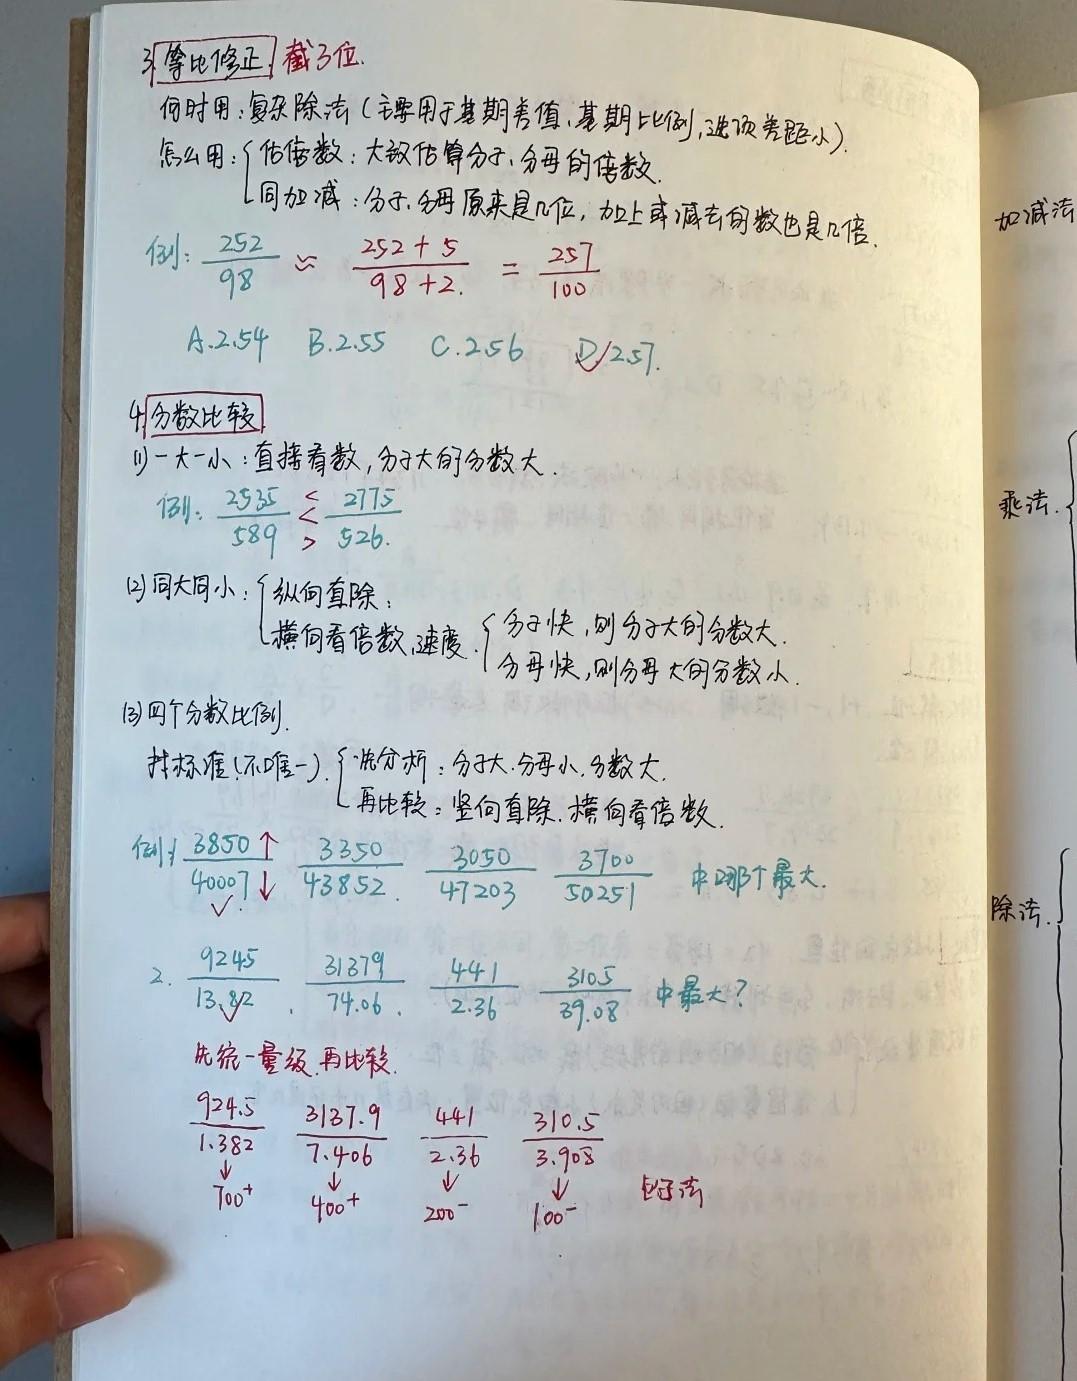 3. 等比修正 截3位.
何时用:复杂除法(主要用于基期差值、基期比例,选项差距小).
怎么用:{估倍数:大致估算分子、分母的倍数.
同加减:分子、分母原来是几位,加上或减去的数也是几倍.
例: 252/98 ≈ (252+5)/(98+2.) = 257/100
A.2.54 B.2.55 C.2.56 D.2.57.
4. 分数比较
(1)一大一小:直接看数,分子大的分数大.
例: 2535/589 < < > 2775/526.
(2)同大同小:{纵向直除;
横向看倍数,速度.{分子快,则分子大的分数大.
分母快,则分母大的分数小.
(3)四个分数比例.
找标准(不唯一).{先分析:分子大.分母小.分数大.
再比较:竖向直除.横向看倍数.
例1 3850↑/40007↓ 3350/43852. 3050/47203 3700/50251 中哪个最大.
2. 9245/13.82 . 31379/74.06 . 441/2.36 3105/39.08 中最大?
先统一量级.再比较.
924.5/1.382 3137.9/7.406 441/2.36 310.5/3.908
↓ ↓ ↓ ↓
700⁺ 400⁺ 200⁻ 100⁻
加减法
乘法.{
除法.{